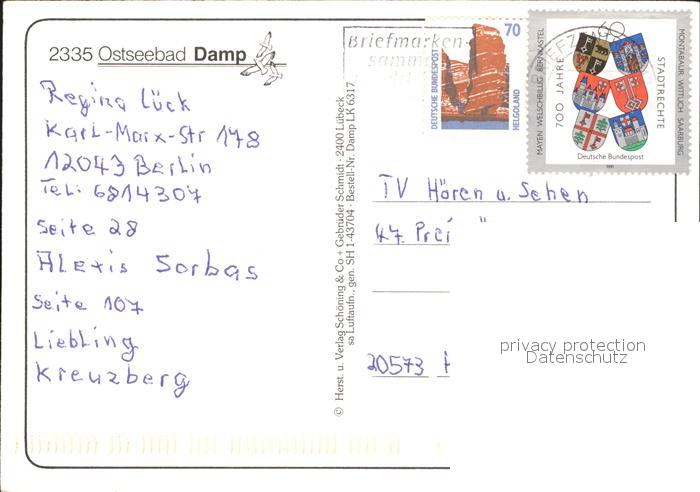 2335 Ostseebad Damp
Regina Lück
Karl-Marx-Str 178
12043 Berlin
Tel: 6814307
Seite 28
Alexis Sorbas
Seite 107
Liebling
Kreuzberg
© Herst. u. Verlag Schöning & Co + Gebrüder Schmidt · 2400 Lübeck
sa Luftaufn., gen. SH 1-43704 · Bestell-Nr. Damp LK 6317
Briefmarken
70
DEUTSCHE BUNDESPOST
HELGOLAND
60
MAYEN WELSCHBILLIG BERNKASTEL
700 JAHRE
STADTRECHTE
MONTABAUR WITTLICH SAARBURG
Deutsche Bundespost
TV Hören u. Sehen
47. Prei
20573
privacy protection
Datenschutz